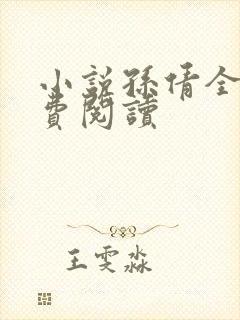 小說孫倩全
費閱讀
王雯淼